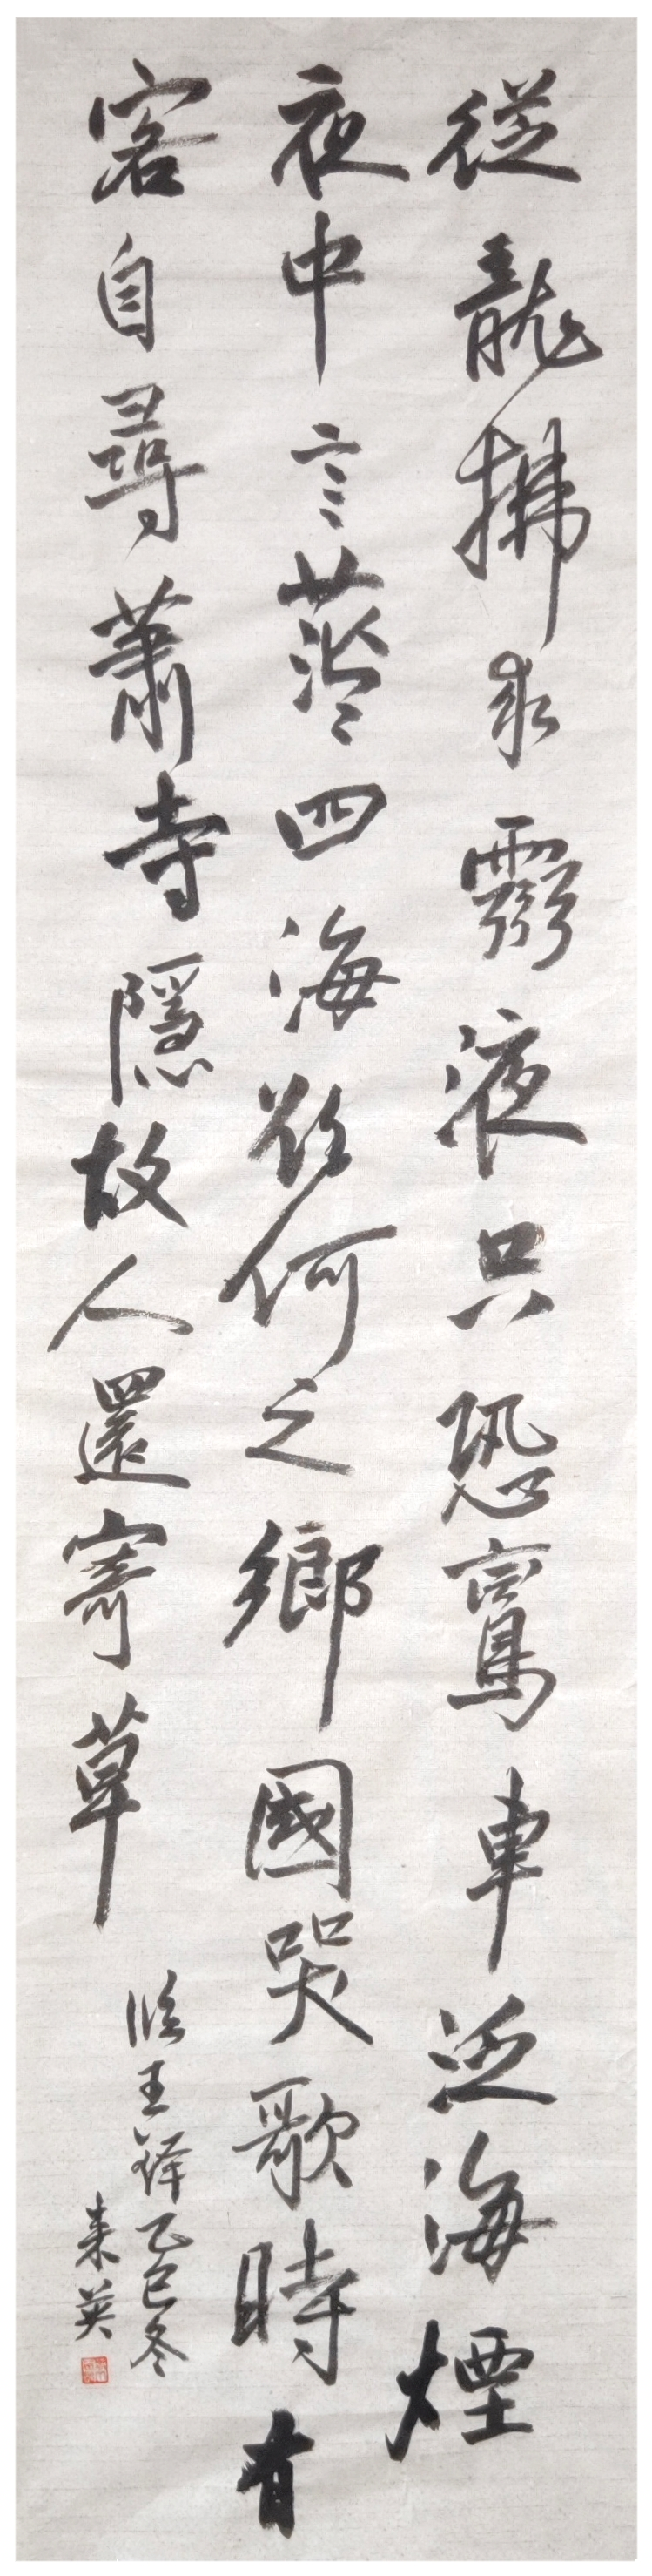 從龍拂求靈液只恐鸞車泛海煙
夜中言茫〻四海欲何之鄉國哭歌時有
客自尋蕭寺隱故人還寄草
臨王鐸乙巳冬
來英